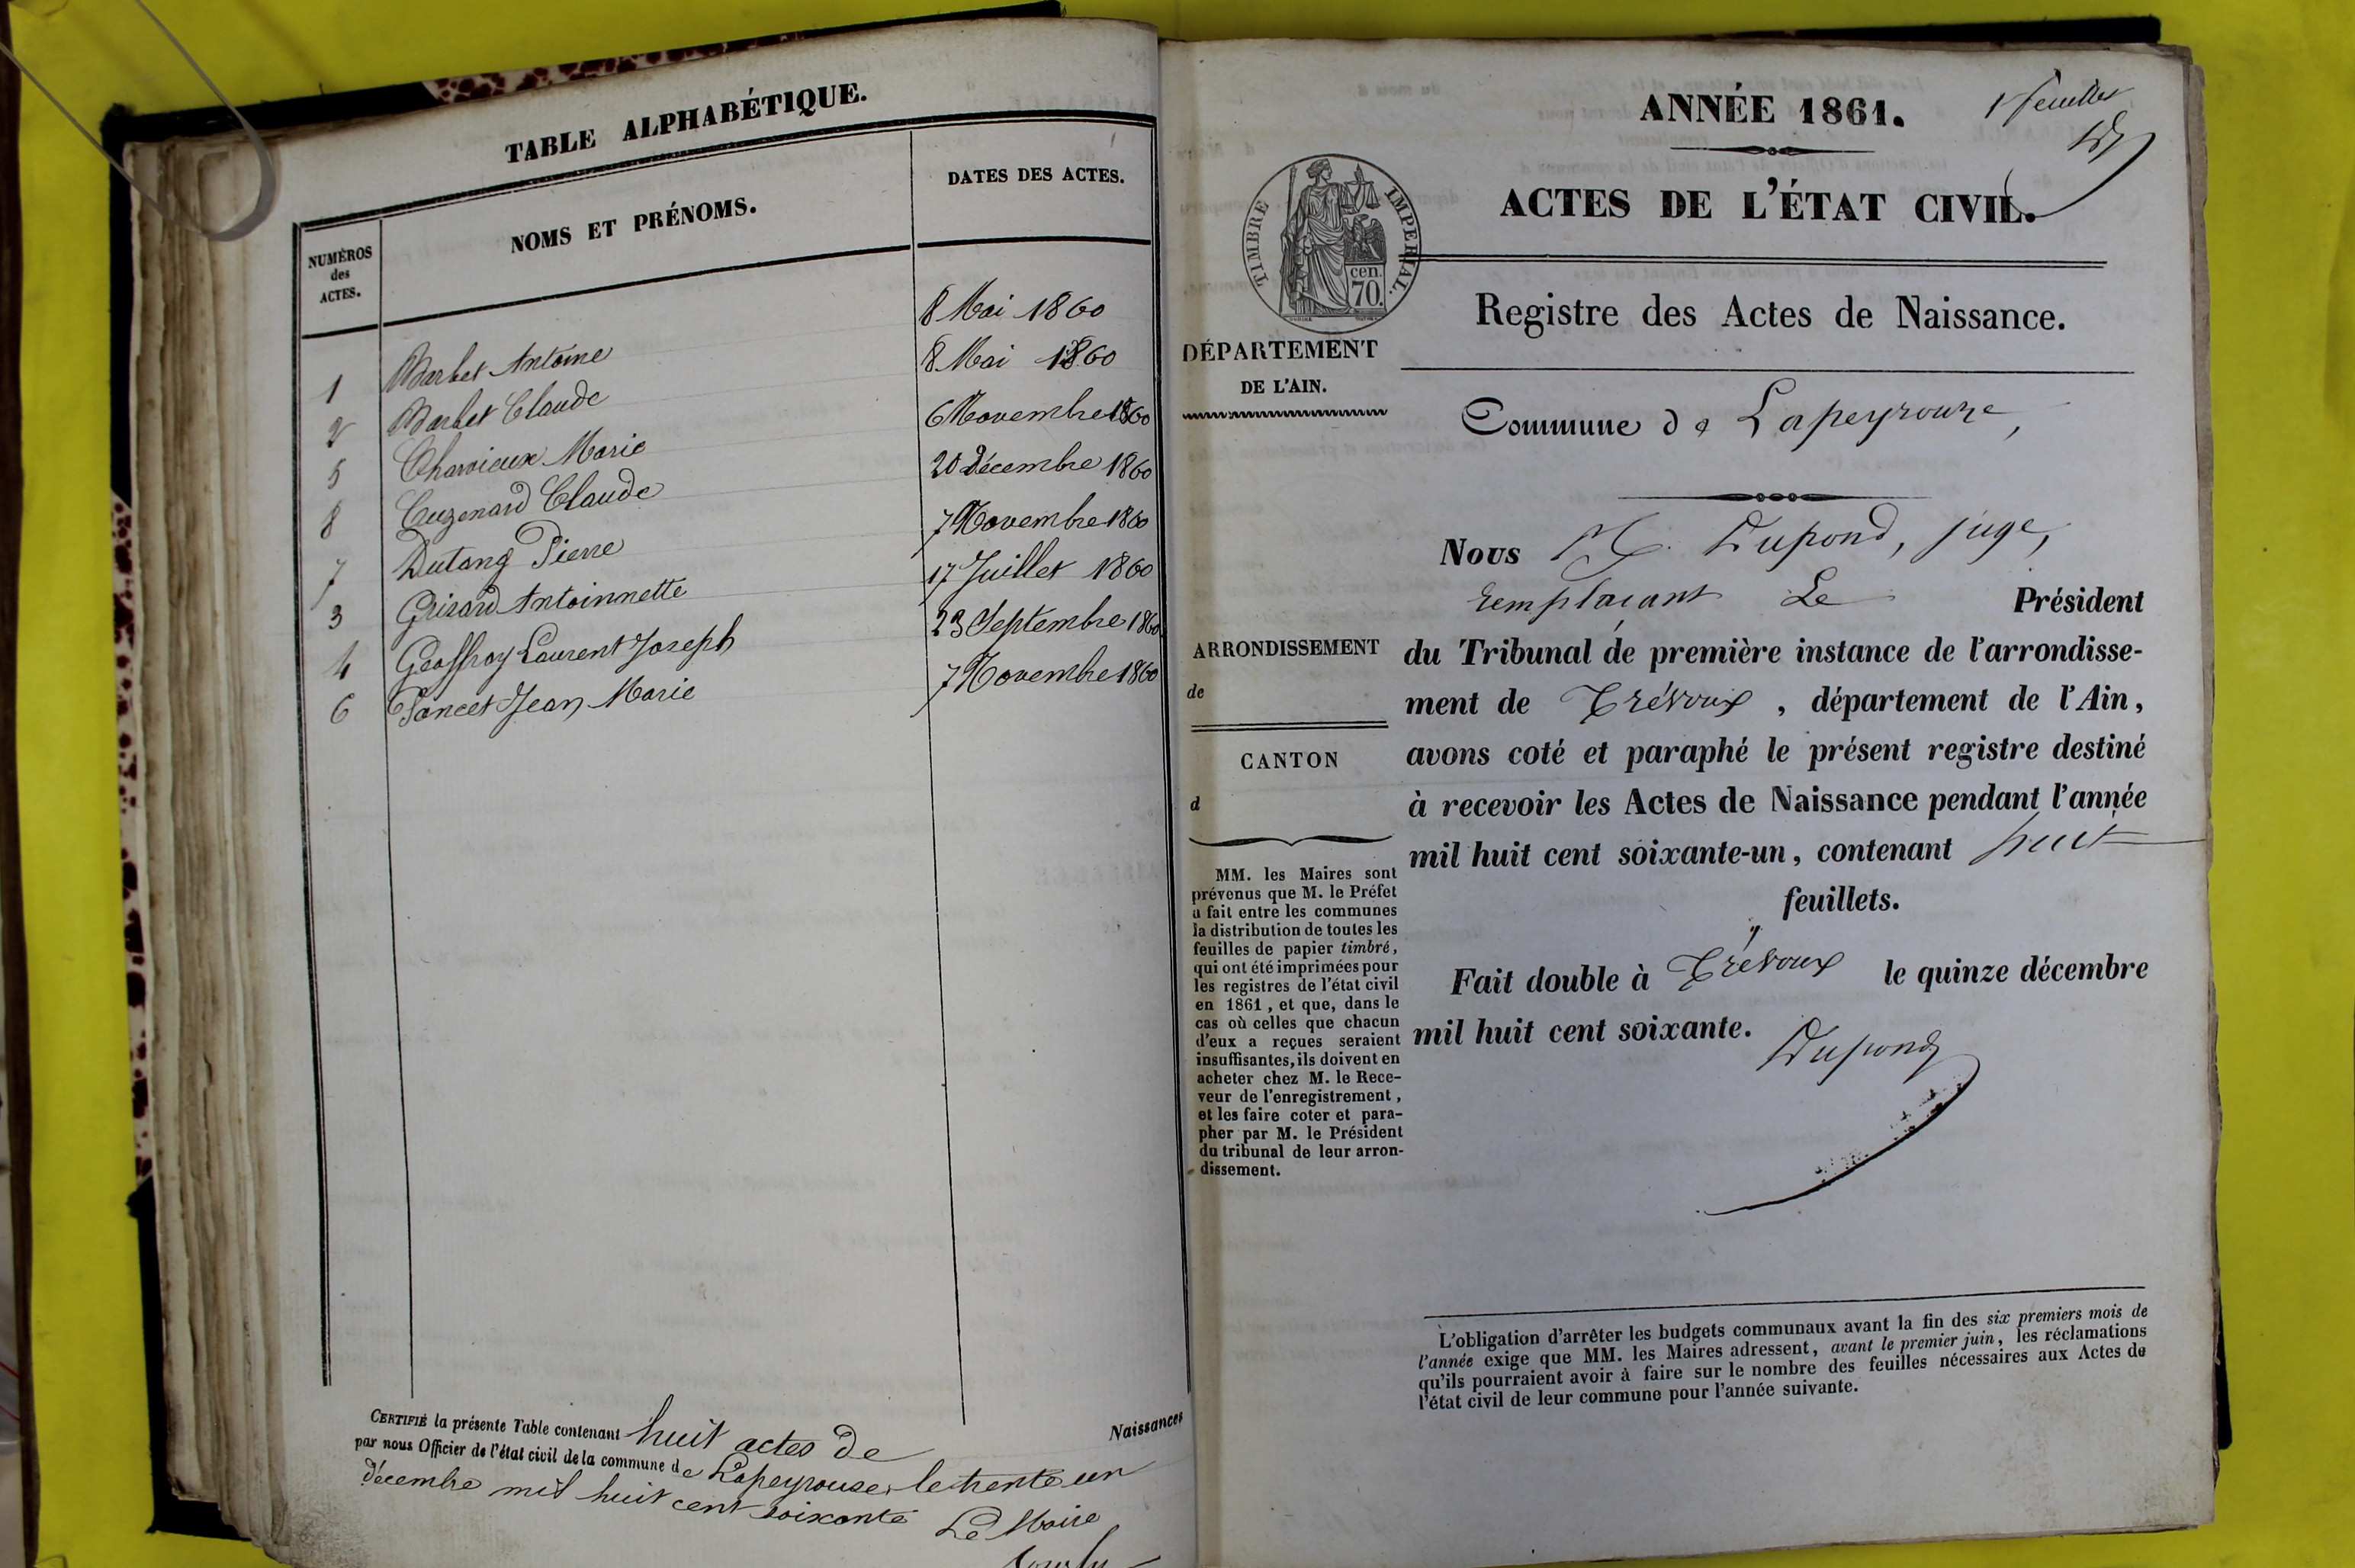 TABLE ALPHABÉTIQUE.
NUMÉROS
des
ACTES.
NOMS ET PRÉNOMS.
DATES DES ACTES.
1 Barbet Antoine 8 Mai 1860
2 Barbet Claude 8 Mai 1860
5 Charvieux Marie 6 Novembre 1860
8 Cuzenard Claude 20 Décembre 1860
7 Dutang Pierre 7 Novembre 1860
3 Grizard Antoinnette 17 Juillet 1860
4 Geoffray Laurent Joseph 23 Septembre 1860
6 Poncet Jean Marie 7 Novembre 1860
CERTIFIÉ la présente Table contenant huit actes de Naissances
par nous Officier de l'état civil de la commune de Lapeyrouse, le trente un
décembre mil huit cent soixante Le Maire
1er feuillet
ANNÉE 1861.
ACTES DE L'ÉTAT CIVIL.
TIMBRE IMPERIAL.
cen.
70.
Registre des Actes de Naissance.
DÉPARTEMENT
DE L'AIN.
Commune de Lapeyrouze,
Nous M. Dupond, juge,
remplaçant Le Président
du Tribunal de première instance de l'arrondisse-
ment de Trévoux, département de l'Ain,
avons coté et paraphé le présent registre destiné
à recevoir les Actes de Naissance pendant l'année
mil huit cent soixante-un, contenant huit
feuillets.
Fait double à Trévoux le quinze décembre
mil huit cent soixante.
Dupond
ARRONDISSEMENT
de
CANTON
d
MM. les Maires sont
prévenus que M. le Préfet
a fait entre les communes
la distribution de toutes les
feuilles de papier timbré,
qui ont été imprimées pour
les registres de l'état civil
en 1861, et que, dans le
cas où celles que chacun
d'eux a reçues seraient
insuffisantes, ils doivent en
acheter chez M. le Rece-
veur de l'enregistrement,
et les faire coter et para-
pher par M. le Président
du tribunal de leur arron-
dissement.
L'obligation d'arrêter les budgets communaux avant la fin des six premiers mois de
l'année exige que MM. les Maires adressent, avant le premier juin, les réclamations
qu'ils pourraient avoir à faire sur le nombre des feuilles nécessaires aux Actes de
l'état civil de leur commune pour l'année suivante.